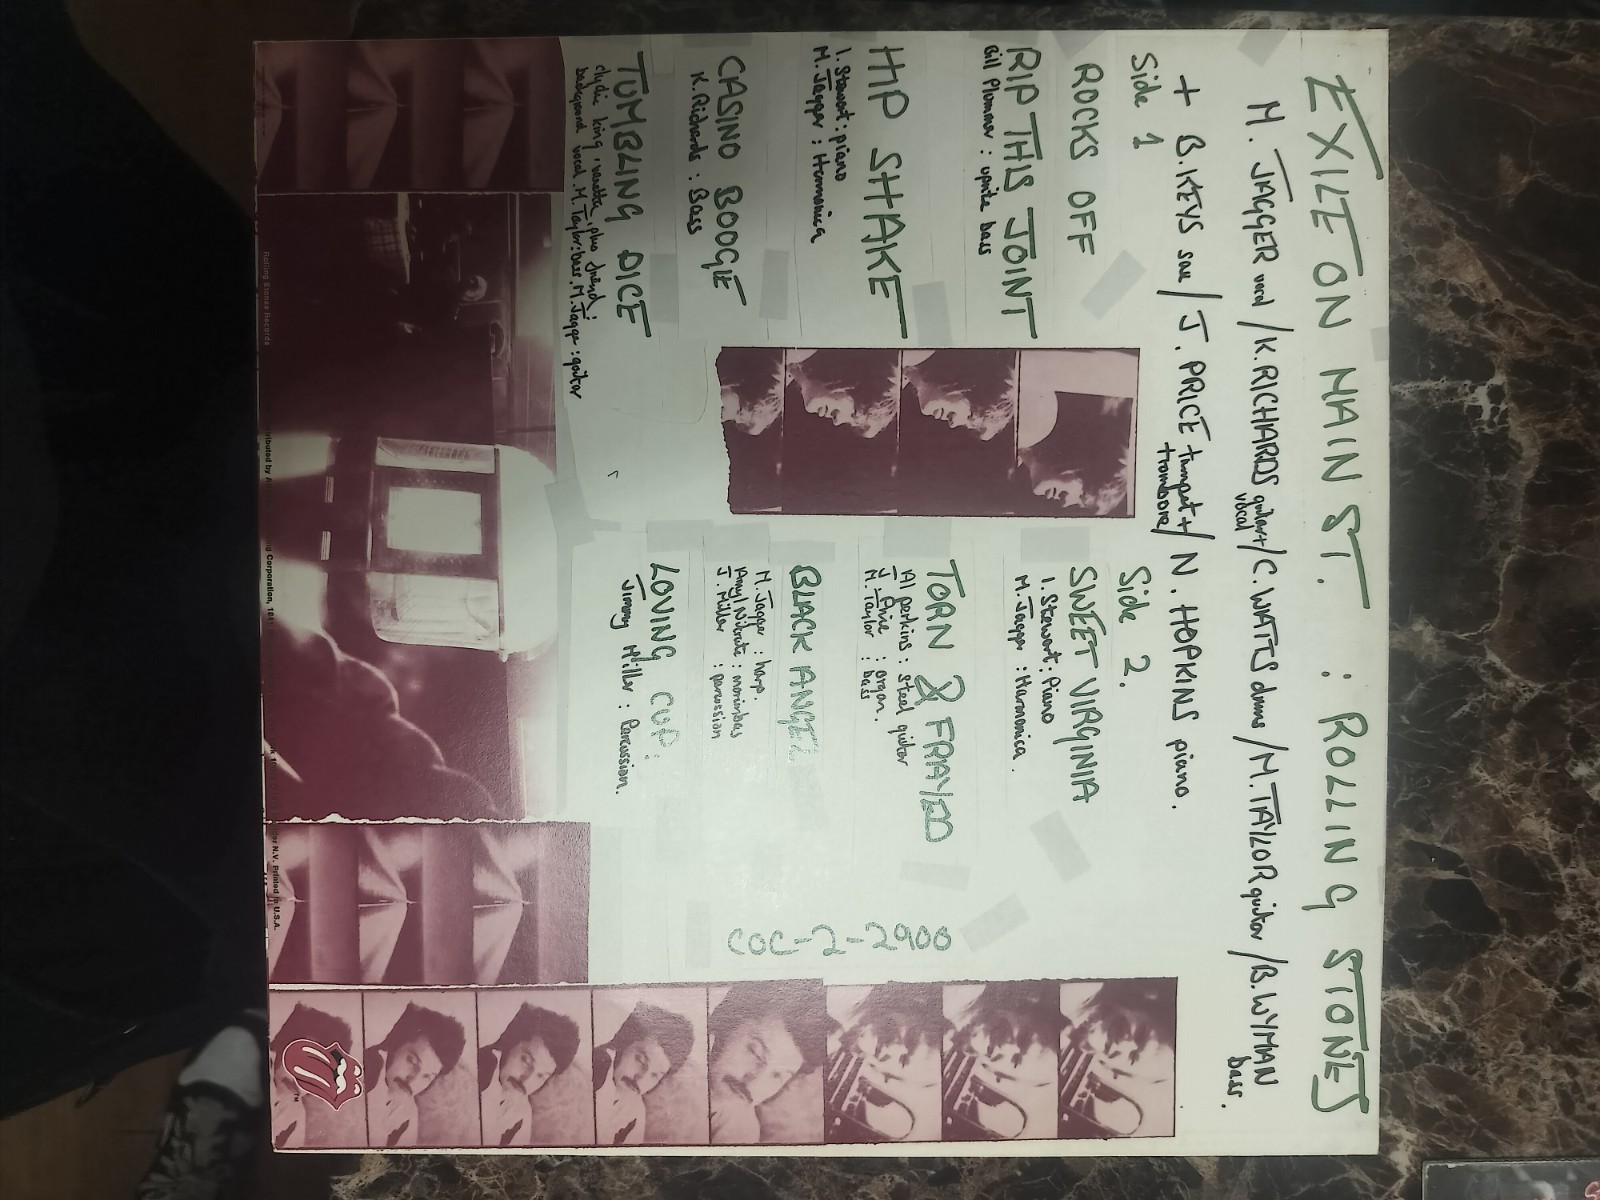 EXILE ON MAIN ST. : ROLLING STONES
M. JAGGER vocal / K. RICHARDS guitar + vocal / C. WATTS drums / M. TAYLOR guitar / B. WYMAN bass.
+ B. KEYS sax / J. PRICE trumpet + trombone / N. HOPKINS piano.
Side 1
ROCKS OFF
RIP THIS JOINT
Bill Plummer : uprite bass
HIP SHAKE
I. Stewart : piano
M. Jagger : Harmonica
CASINO BOOGIE
K. Richards : Bass
TUMBLING DICE
clydie king, vanetta, plus friend :
background vocal. M. Taylor : bass. M. Jagger : guitar
Side 2.
SWEET VIRGINIA
I. Stewart : Piano
M. Jagger : Harmonica.
TORN & FRAYED
Al perkins : steel guitar
J. Price : organ.
M. Taylor : bass
BLACK ANGEL
M. Jagger : harp.
Amyl Nitrate : marimbas
J. Miller : percussion
LOVING CUP :
Jimmy Miller : Percussion.
COC-2-2900
Rolling Stones Records
Corporation, 1841
N.V. Printed in U.S.A.
TM